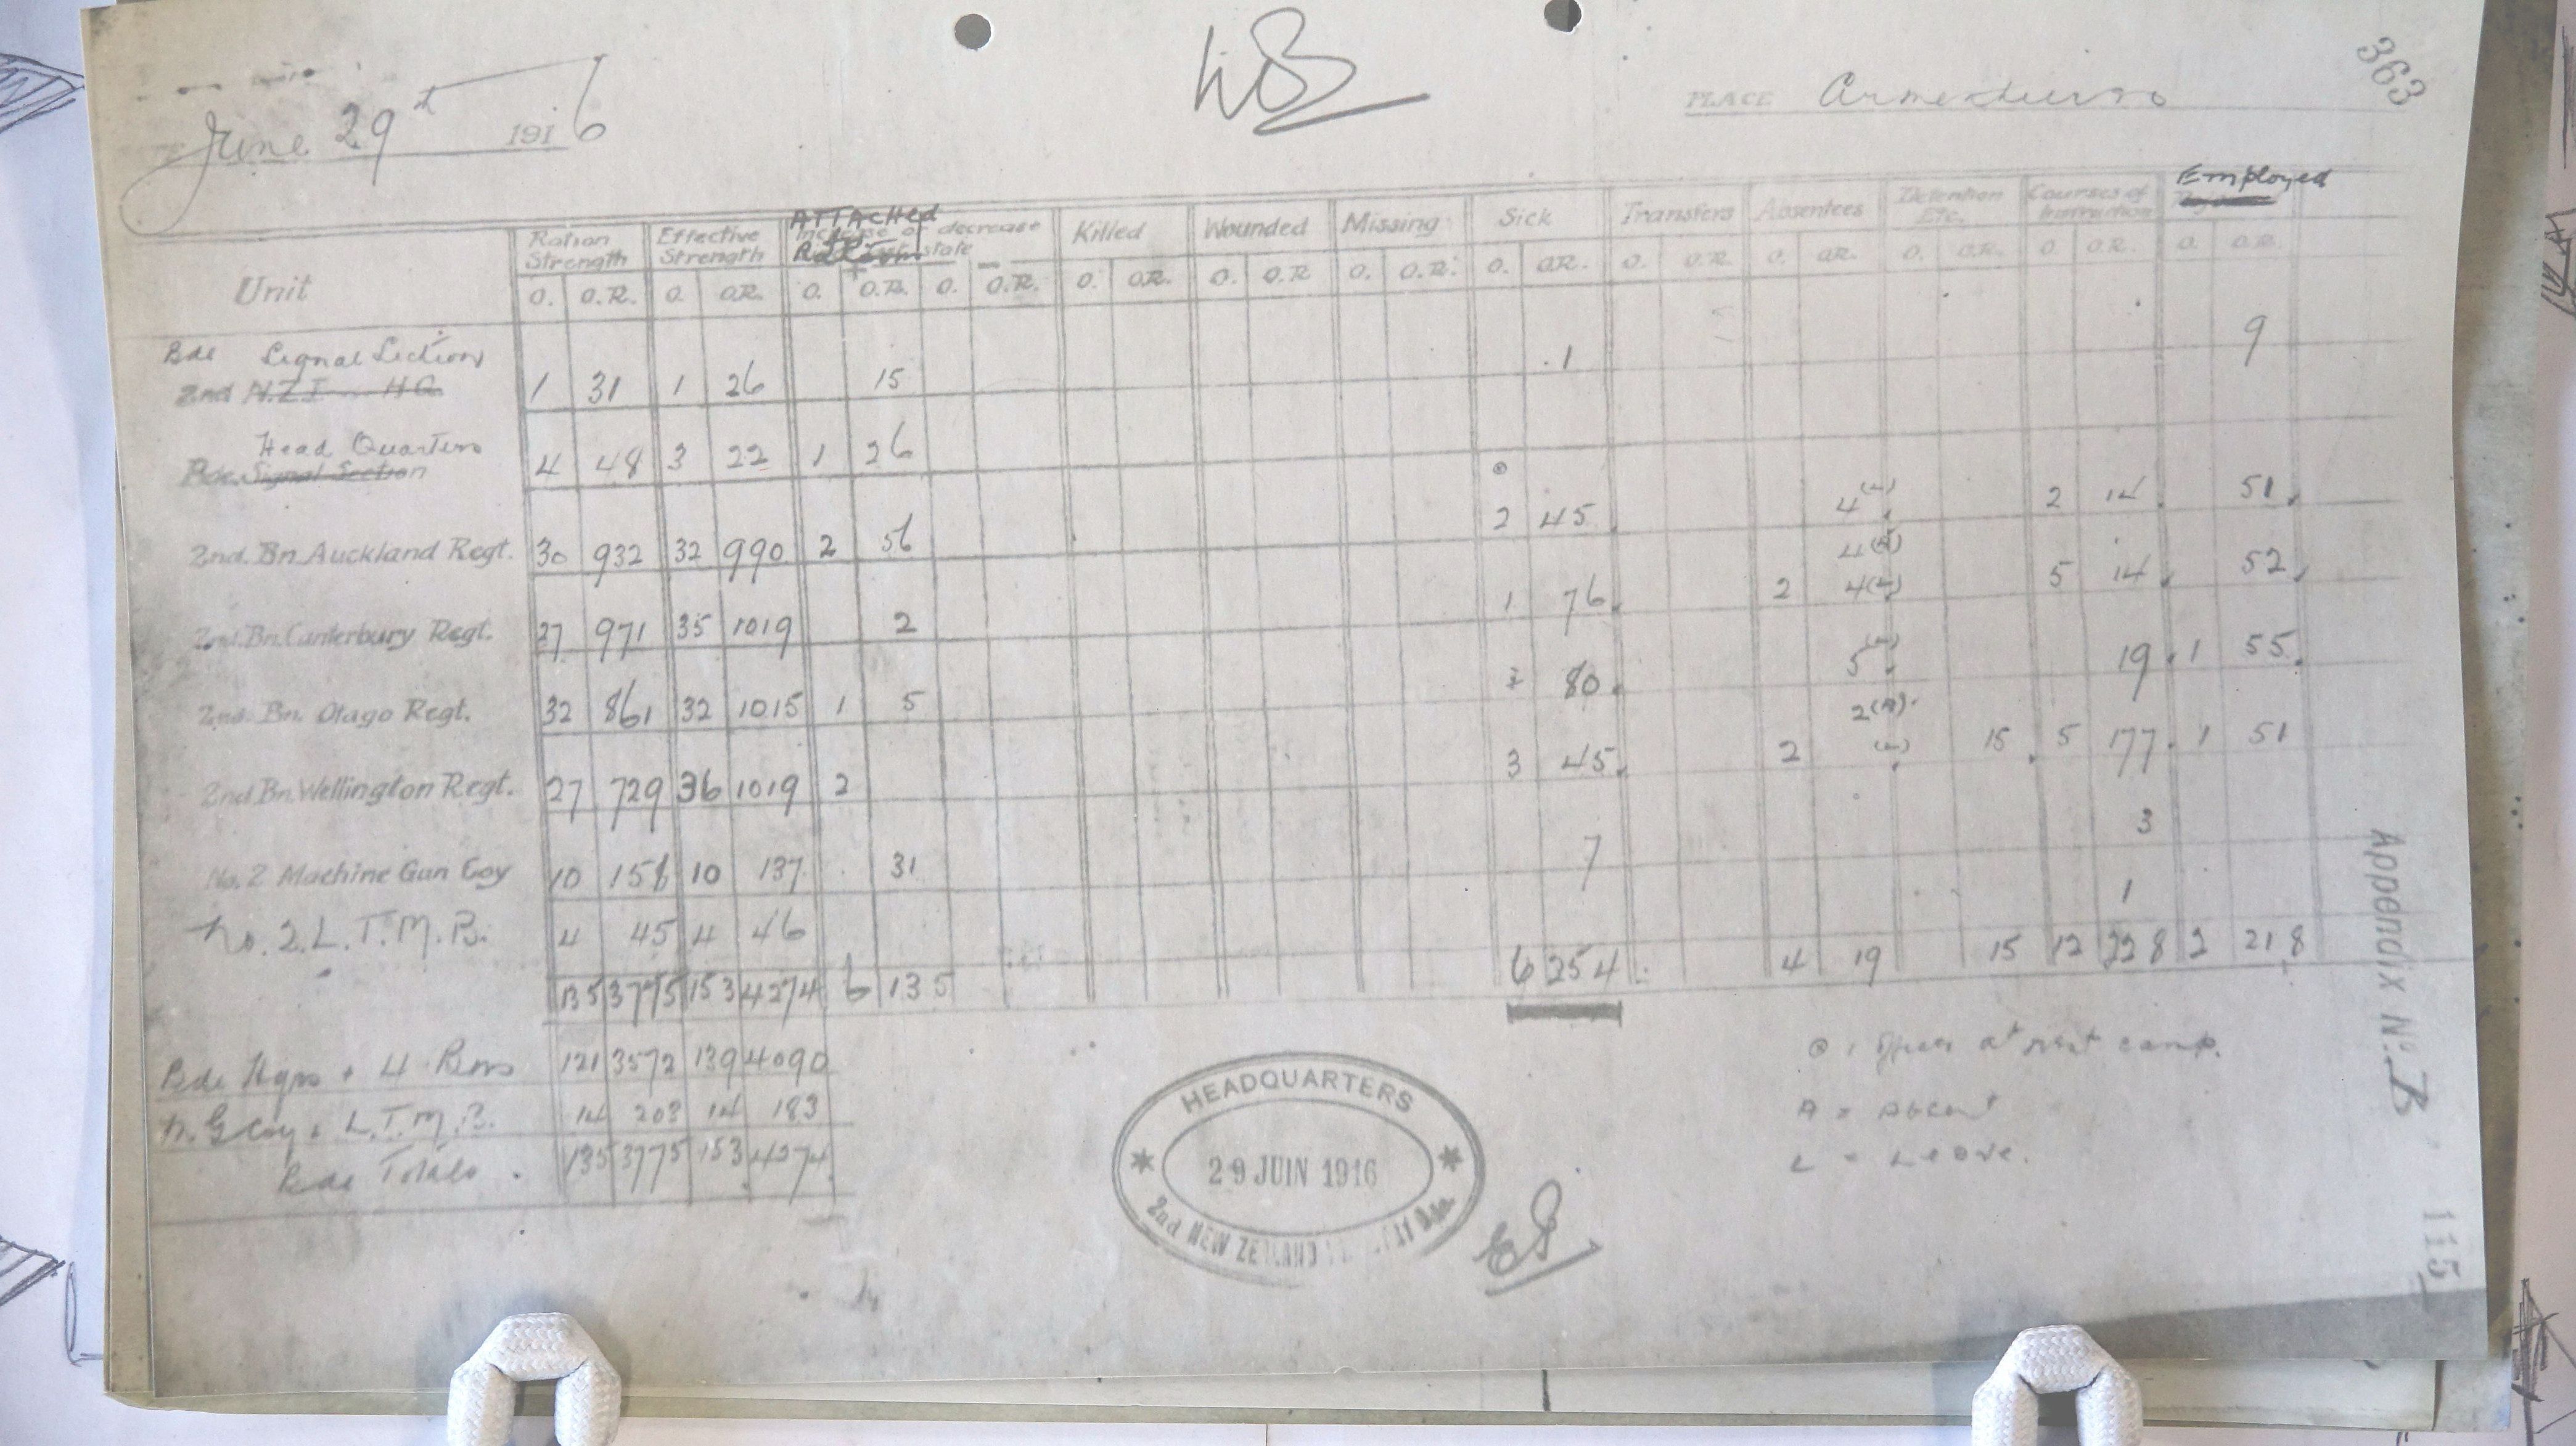 363
WB
June 29th 1916
PLACE Armentieres
Unit Ration Strength Effective Strength ATTACHED Increase or decrease state Killed Wounded Missing Sick Transfers Absentees Detention Etc. Courses of Instruction Employed
O. O.R. O. O.R. O. O.R. O. O.R. O. O.R. O. O.R. O. O.R. O. O.R. O. O.R. O. O.R. O. O.R. O. O.R. O. O.R.
Bde Signal Section
2nd N.Z.I. H.Q. 1 31 1 26 15 1 9
Head Quarters
Bde. Signal Section 4 48 3 22 1 26
2nd. Bn. Auckland Regt. 30 932 32 990 2 56 2 45 4(L) 2 14 51
4(A)
2nd. Bn. Canterbury Regt. 27 971 35 1019 2 1 76 2 4(L) 5 14 52
2nd. Bn. Otago Regt. 32 861 32 1015 1 5 80 5(L) 19 1 55
2(A)
2nd. Bn. Wellington Regt. 27 729 36 1019 2 3 45 2 (L) 15 5 177 1 51
No. 2 Machine Gun Coy 10 158 10 137 31 7 3
No. 2. L. T. M. B. 4 45 4 46 1
135 3775 153 4274 6 135 6 254 4 19 15 12 228 2 218
Bde Hqrs + 4 Bns 121 3572 139 4090
M. G Coy + L.T.M.B. 14 203 14 183
Bde Totals. 135 3775 153 4274
1 Officer at rest camp.
A = Absent
L = Leave.
HEADQUARTERS
29 JUIN 1916
2nd NEW ZEALAND
Appendix No. B
115